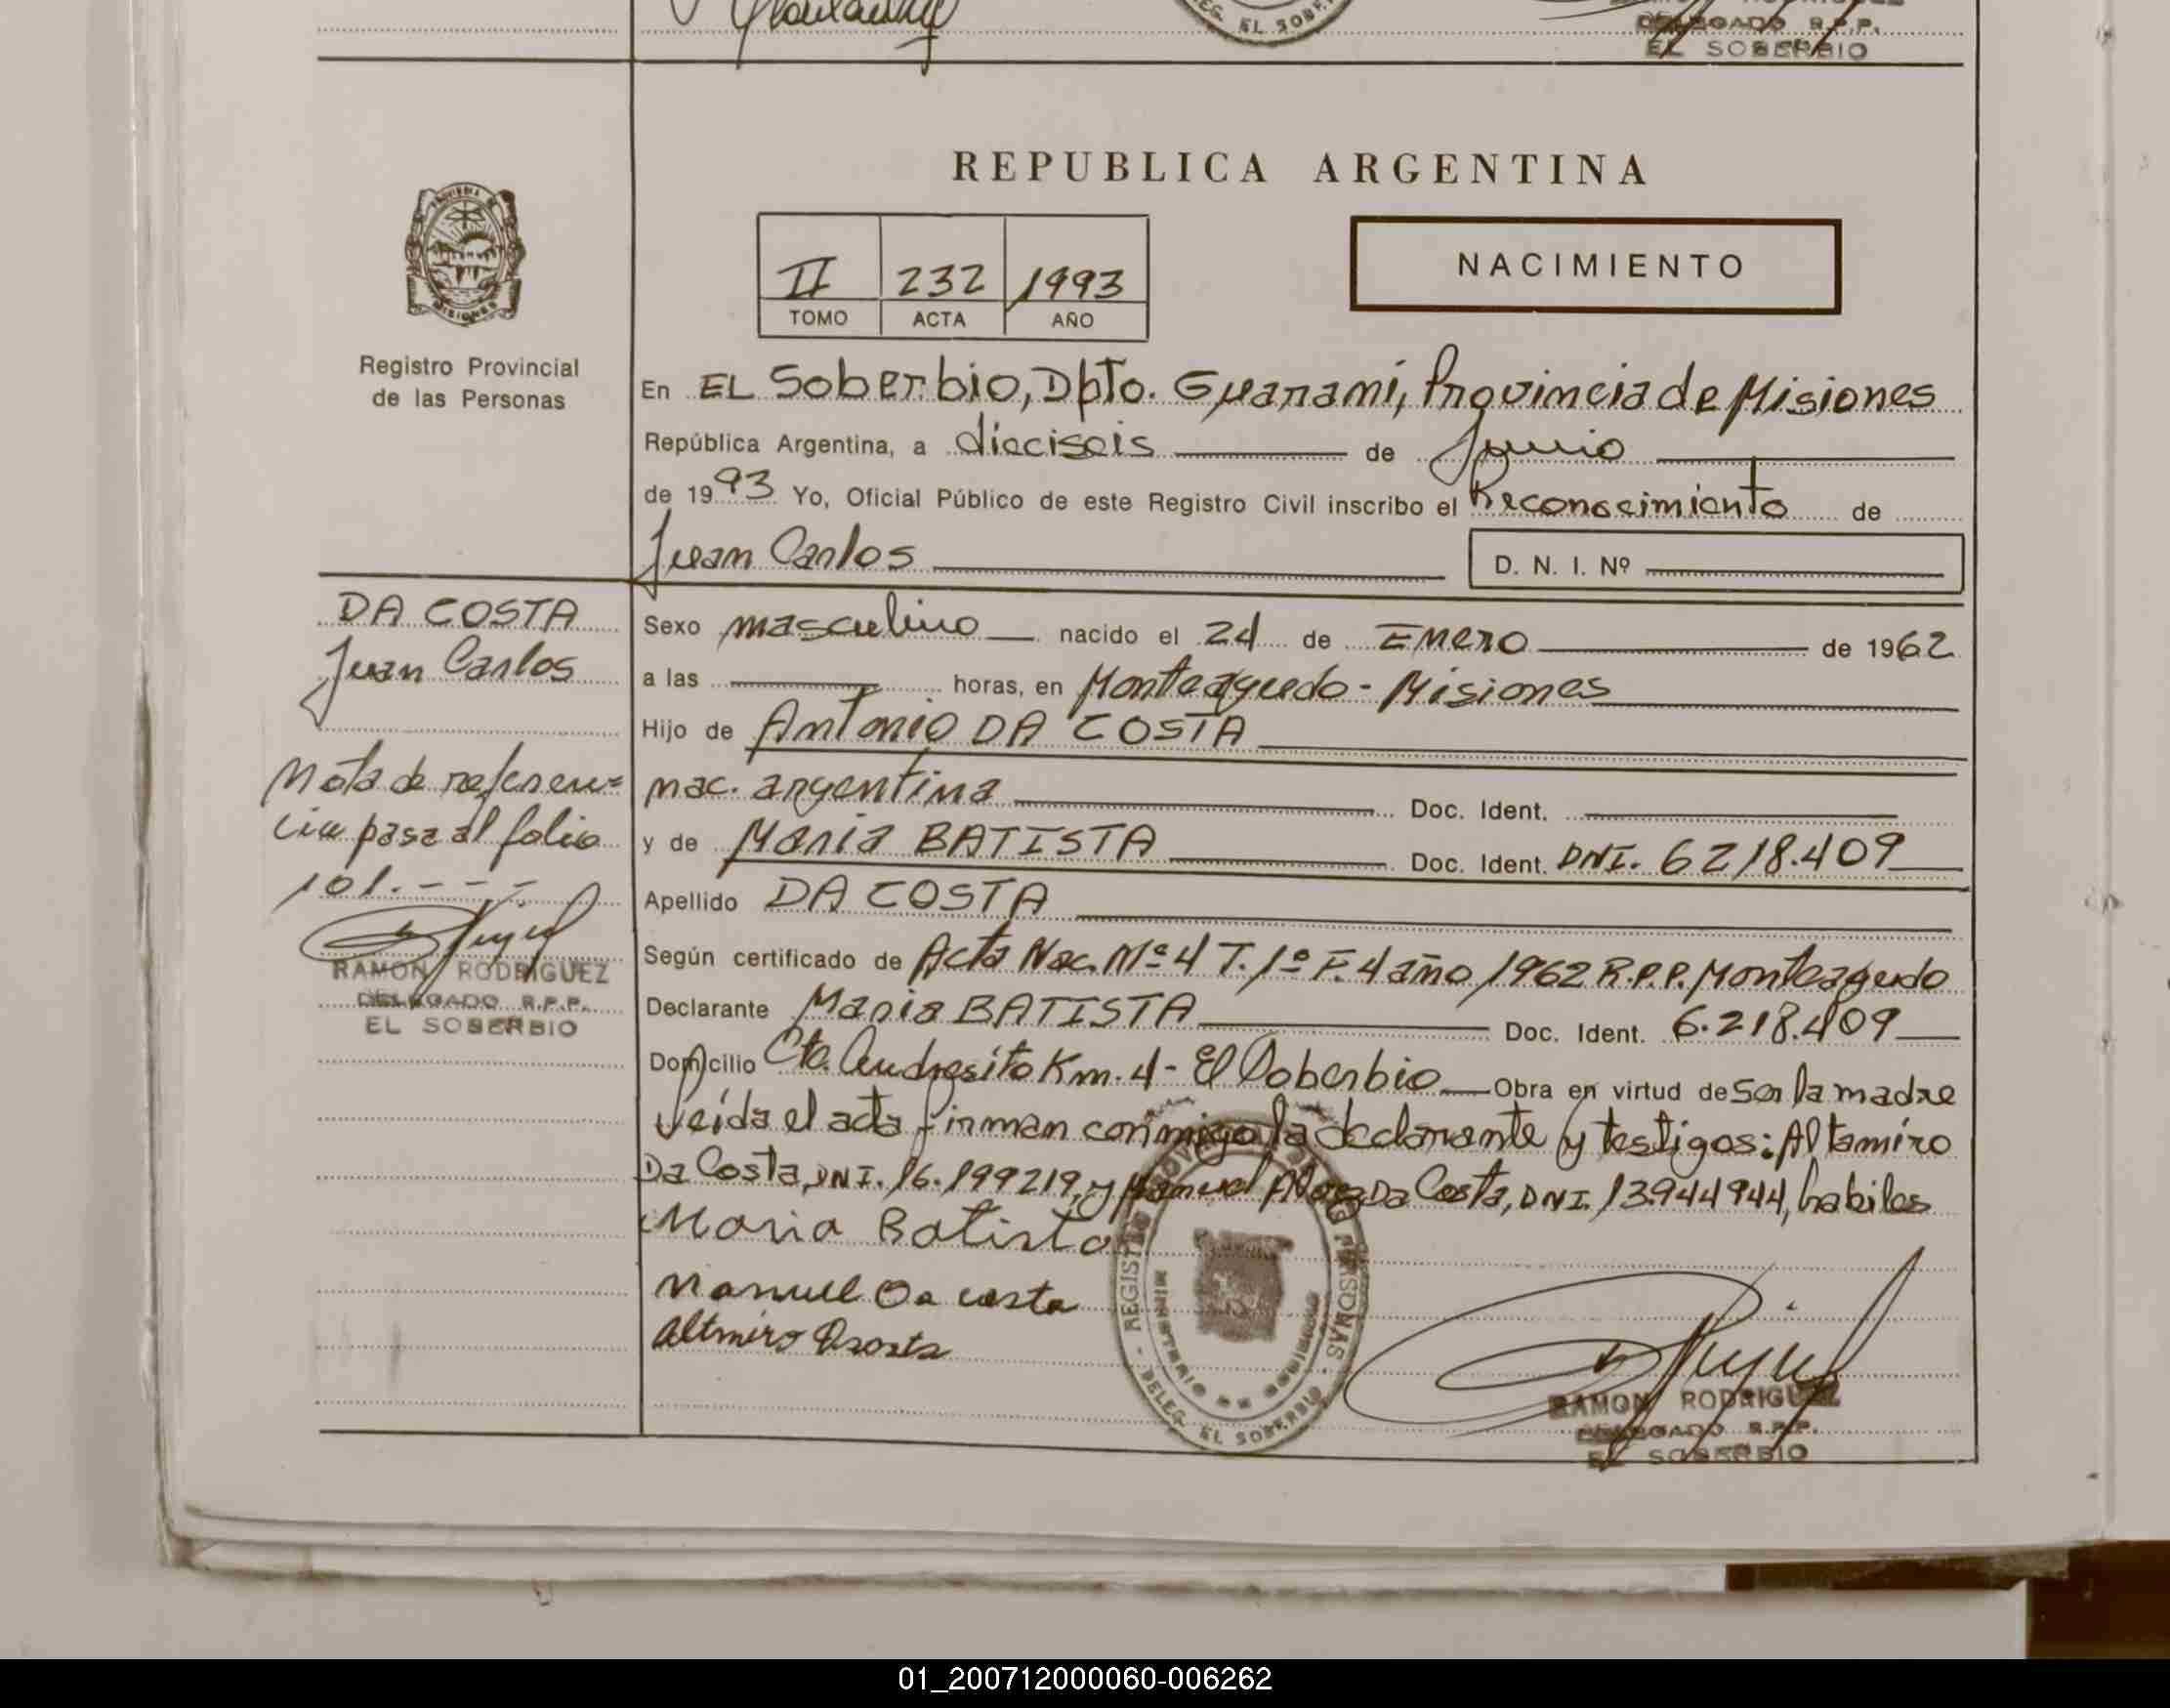 DELEGADO R.P.P.
EL SOBERBIO
REG. EL SOBER
REPUBLICA ARGENTINA
II 232 1993
TOMO ACTA AÑO
NACIMIENTO
PROVINCIA DE
MISIONES
Registro Provincial
de las Personas
En EL Soberbio, Dpto. Guarami, Provincia de Misiones
República Argentina, a dieciseis de Junio
de 1993 Yo, Oficial Público de este Registro Civil inscribo el Reconocimiento de
Juan Carlos D. N. I. Nº
DA COSTA
Juan Carlos
Nota de referen=
cia pasa al folio
101.---
RAMON RODRIGUEZ
DELEGADO R.P.P.
EL SOBERBIO
Sexo masculino nacido el 24 de Enero de 1962
a las horas, en Monteagudo - Misiones
Hijo de Antonio DA COSTA
nac. argentina Doc. Ident.
y de Maria BATISTA Doc. Ident. DNI. 6218.409
Apellido DA COSTA
Según certificado de Acta Nac. Nº 4 T. 1º F. 4 año 1962 R.P.P. Monteagudo
Declarante Maria BATISTA Doc. Ident. 6.218.409
Domicilio Cte. Andresito Km. 4 - El Soberbio Obra en virtud de ser la madre
Leída el acta firman conmigo la declarante y testigos: Altamiro
Da Costa, DNI. 16.199219, y Manuel Da Costa, DNI. 13944944, habiles
Maria Batista
Manuel Da costa
Altmiro Dacosta
REGISTRO PROVINCIAL DE LAS PERSONAS
MINISTERIO DE GOBIERNO
DELEG. EL SOBERBIO
RAMON RODRIGUEZ
DELEGADO R.P.P.
EL SOBERBIO
01_200712000060-006262